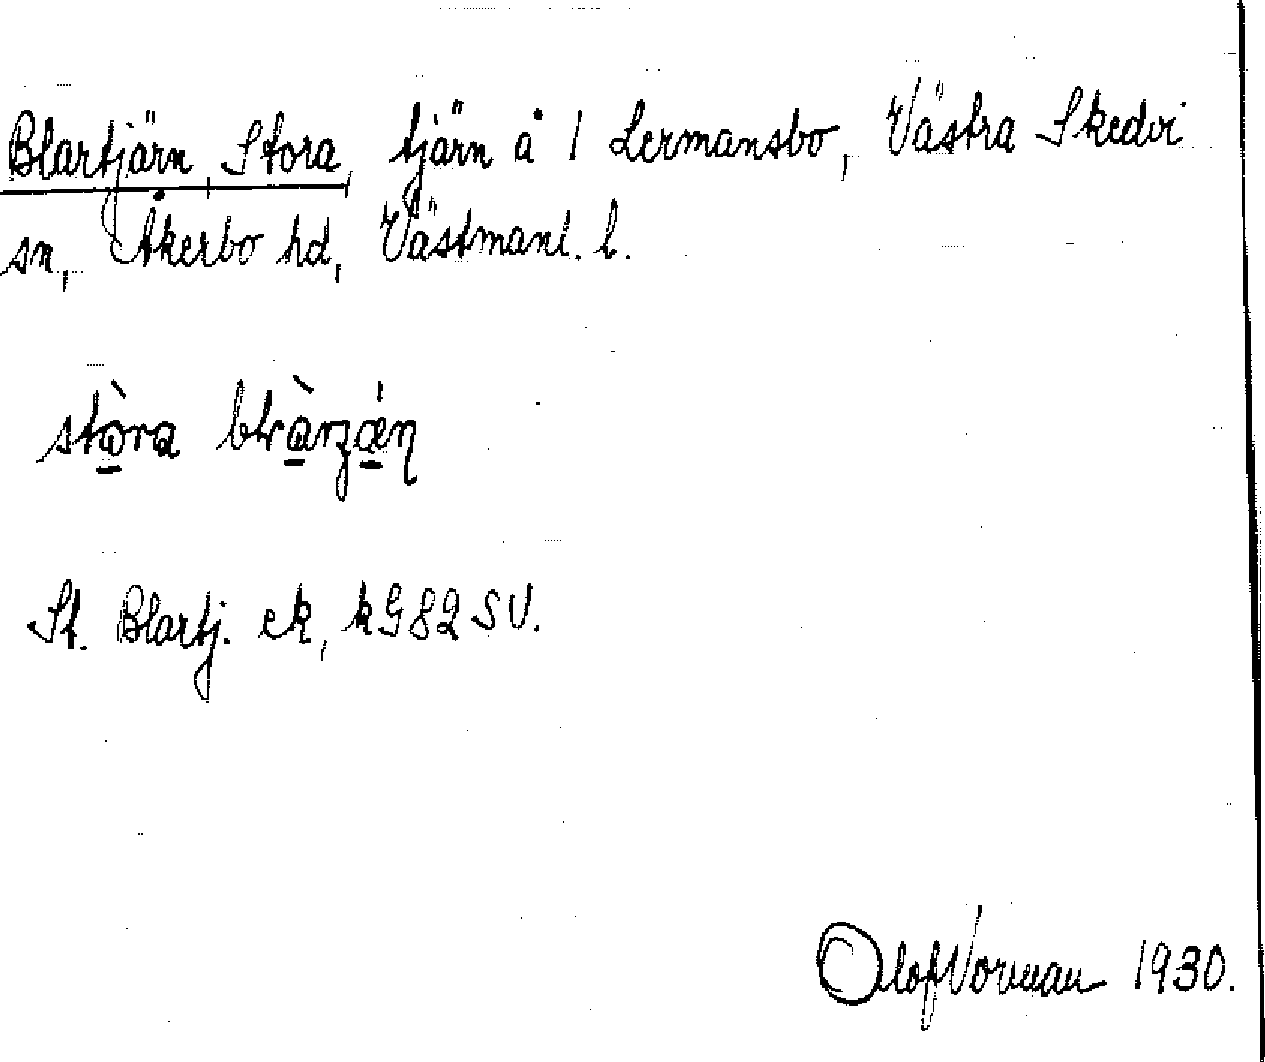 Blartjärn, Stora, tjärn å 1 Lermansbo, Västra Skedvi
sn, Åkerbo hd, Västmanl. l.
stòra
St. Blartj. ek, kG82 SV.
Olof Norman 1930.